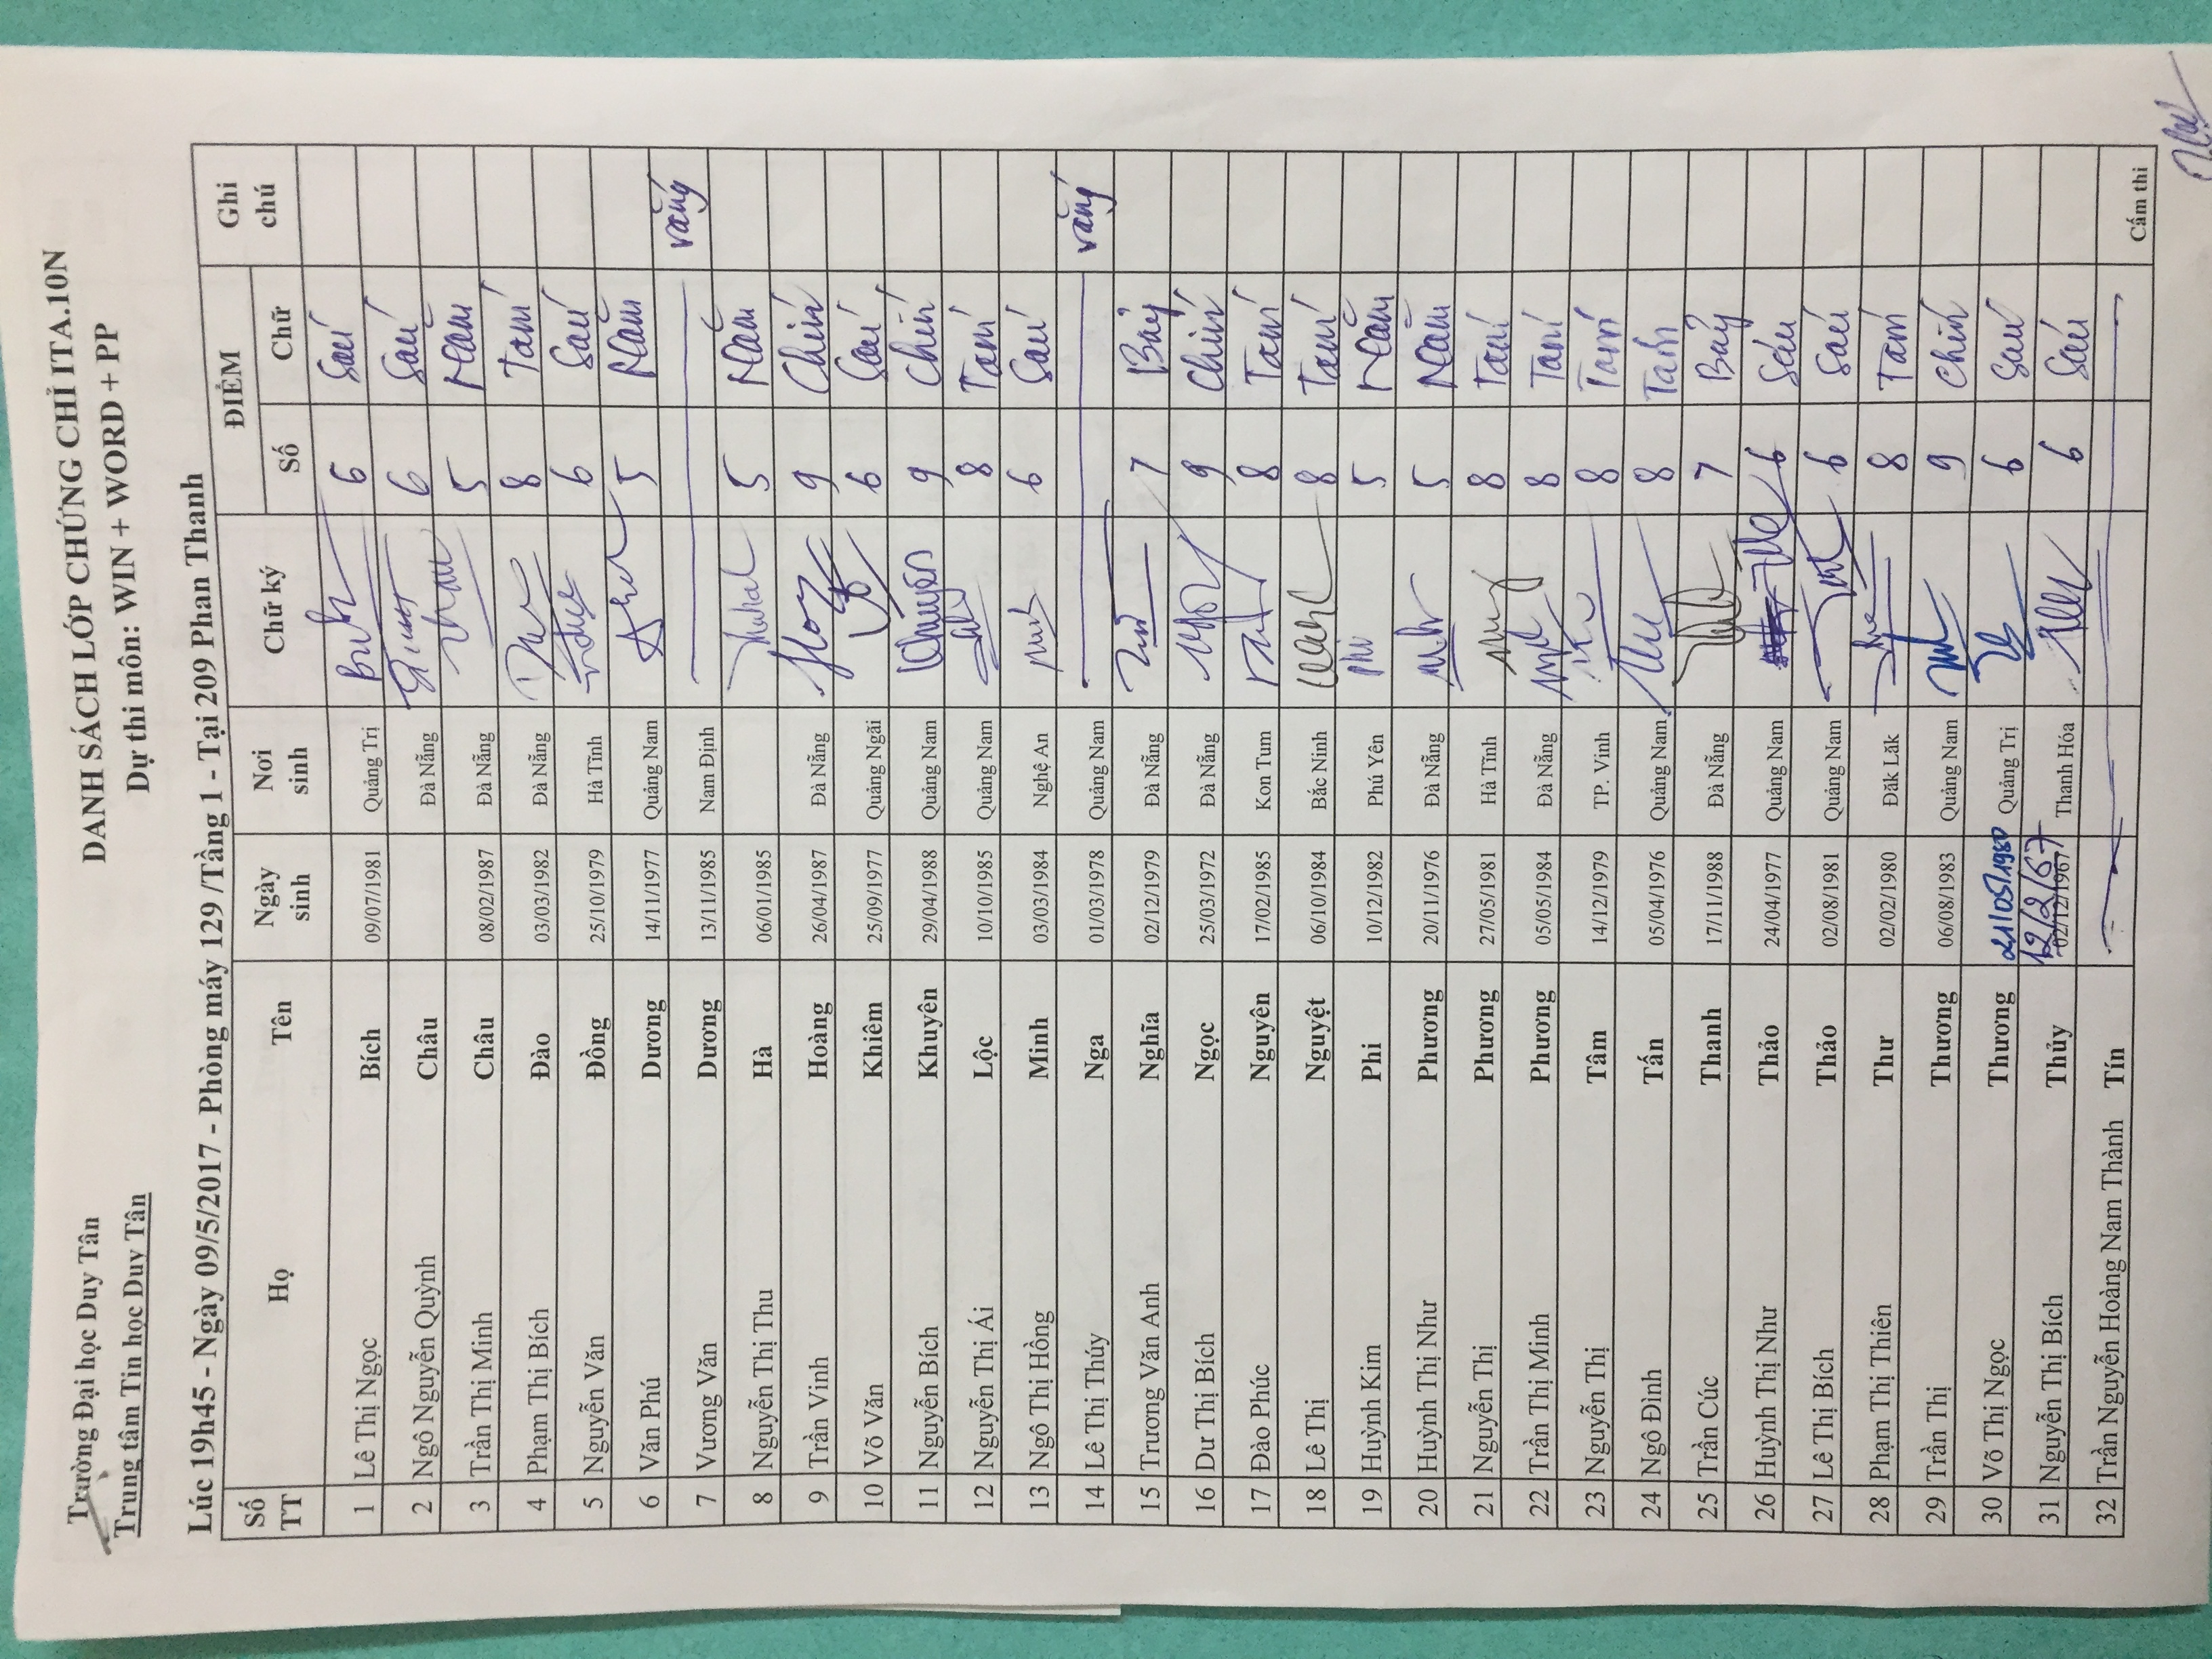 Trường Đại học Duy Tân
Trung tâm Tin học Duy Tân
DANH SÁCH LỚP CHỨNG CHỈ ITA.10N
Dự thi môn: WIN + WORD + PP
Lúc 19h45 - Ngày 09/5/2017 - Phòng máy 129 /Tầng 1 - Tại 209 Phan Thanh
Số TT Họ Tên Ngày sinh Nơi sinh Chữ ký ĐIỂM Số Chữ Ghi chú
1 Lê Thị Ngọc Bích 09/07/1981 Quảng Trị 6 Sáu
2 Ngô Nguyễn Quỳnh Châu Đà Nẵng 6 Sáu
3 Trần Thị Minh Châu 08/02/1987 Đà Nẵng 5 Năm
4 Phạm Thị Bích Đào 03/03/1982 Đà Nẵng 8 Tám
5 Nguyễn Văn Đồng 25/10/1979 Hà Tĩnh 6 Sáu
6 Văn Phú Dương 14/11/1977 Quảng Nam 5 Năm
7 Vương Văn Dương 13/11/1985 Nam Định vắng
8 Nguyễn Thị Thu Hà 06/01/1985 5 Năm
9 Trần Vinh Hoàng 26/04/1987 Đà Nẵng 9 Chín
10 Võ Văn Khiêm 25/09/1977 Quảng Ngãi 6 Sáu
11 Nguyễn Bích Khuyên 29/04/1988 Quảng Nam Khuyên 9 Chín
12 Nguyễn Thị Ái Lộc 10/10/1985 Quảng Nam 8 Tám
13 Ngô Thị Hồng Minh 03/03/1984 Nghệ An 6 Sáu
14 Lê Thị Thúy Nga 01/03/1978 Quảng Nam vắng
15 Trương Văn Anh Nghĩa 02/12/1979 Đà Nẵng 7 Bảy
16 Dư Thị Bích Ngọc 25/03/1972 Đà Nẵng 9 Chín
17 Đào Phúc Nguyên 17/02/1985 Kon Tum 8 Tám
18 Lê Thị Nguyệt 06/10/1984 Bắc Ninh 8 Tám
19 Huỳnh Kim Phi 10/12/1982 Phú Yên Phi 5 Năm
20 Huỳnh Thị Như Phương 20/11/1976 Đà Nẵng 5 Năm
21 Nguyễn Thị Phương 27/05/1981 Hà Tĩnh 8 Tám
22 Trần Thị Minh Phương 05/05/1984 Đà Nẵng 8 Tám
23 Nguyễn Thị Tâm 14/12/1979 TP. Vinh 8 Tám
24 Ngô Đình Tấn 05/04/1976 Quảng Nam 8 Tám
25 Trần Cúc Thanh 17/11/1988 Đà Nẵng 7 Bảy
26 Huỳnh Thị Như Thảo 24/04/1977 Quảng Nam 6 Sáu
27 Lê Thị Bích Thảo 02/08/1981 Quảng Nam 6 Sáu
28 Phạm Thị Thiên Thư 02/02/1980 Đăk Lăk 8 Tám
29 Trần Thị Thương 06/08/1983 Quảng Nam 9 Chín
30 Võ Thị Ngọc Thương 21/05/1980 Quảng Trị 6 Sáu
31 Nguyễn Thị Bích Thủy 12/2/67 02/12/1967 Thanh Hóa 6 Sáu
32 Trần Nguyễn Hoàng Nam Thành Tín Cấm thi